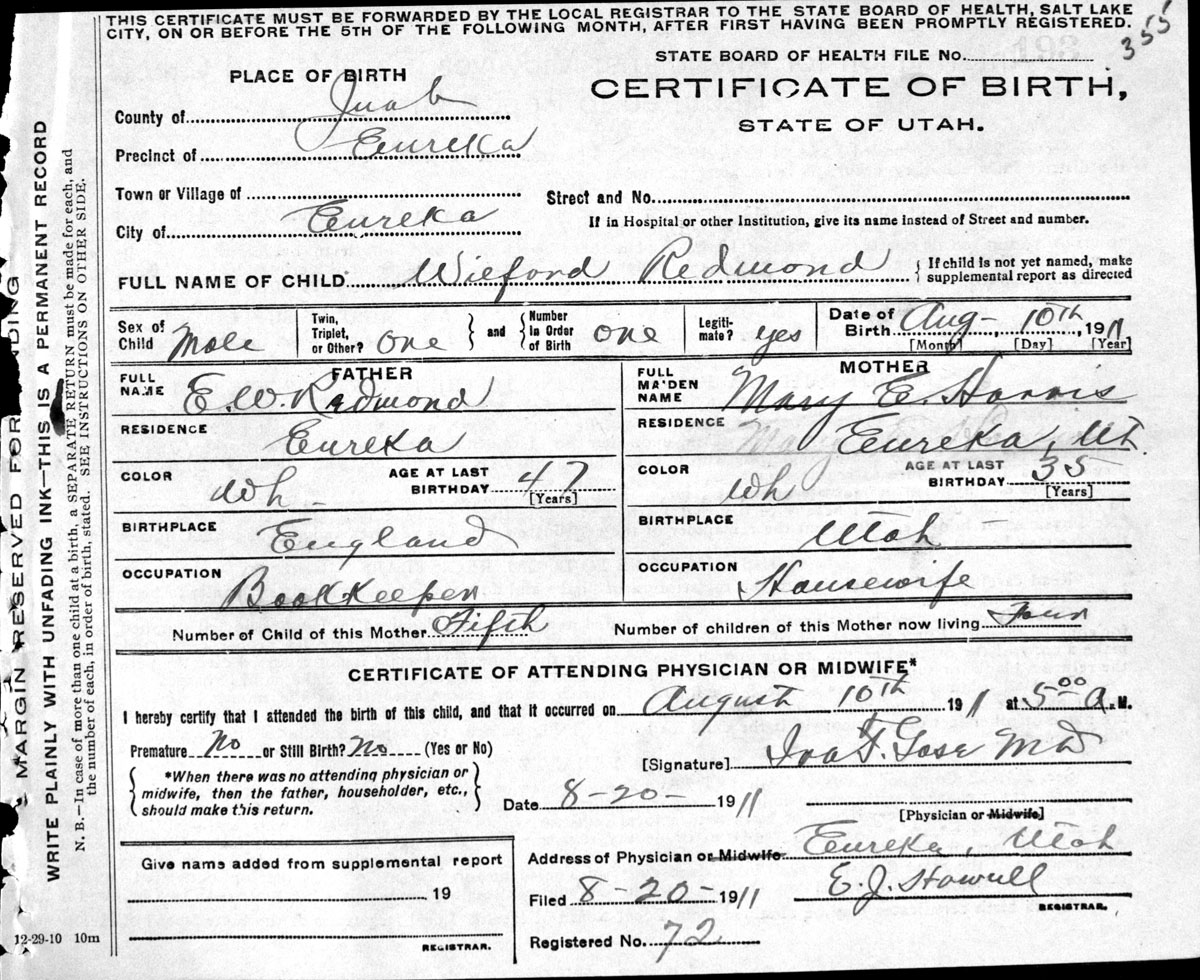 THIS CERTIFICATE MUST BE FORWARDED BY THE LOCAL REGISTRAR TO THE STATE BOARD OF HEALTH, SALT LAKE
CITY, ON OR BEFORE THE 5TH OF THE FOLLOWING MONTH, AFTER FIRST HAVING BEEN PROMPTLY REGISTERED.
355
STATE BOARD OF HEALTH FILE No. 193
CERTIFICATE OF BIRTH,
STATE OF UTAH.
PLACE OF BIRTH
County of Juab
Precinct of Eureka
Town or Village of
Street and No.
City of Eureka
If in Hospital or other Institution, give its name instead of Street and number.
FULL NAME OF CHILD Wilford Redmond { If child is not yet named, make
supplemental report as directed
Sex of Child Male Twin, Triplet, or Other? One } and { Number In Order of Birth one Legiti-mate? yes Date of Birth Aug- 10th, 1911
[Month] [Day] [Year]
FATHER
FULL NAME E. W. Redmond
RESIDENCE Eureka
COLOR Wh - AGE AT LAST BIRTHDAY 47
[Years]
BIRTHPLACE England
OCCUPATION Bookkeeper
MOTHER
FULL MAIDEN NAME Mary E. Harris
RESIDENCE Eureka, Ut.
COLOR Wh AGE AT LAST BIRTHDAY 35
[Years]
BIRTHPLACE Utah
OCCUPATION Housewife
Number of Child of this Mother Fifth Number of children of this Mother now living Four
CERTIFICATE OF ATTENDING PHYSICIAN OR MIDWIFE*
I hereby certify that I attended the birth of this child, and that it occurred on August 10th 1911 at 5 00 A. M.
Premature No or Still Birth? No (Yes or No)
{ *When there was no attending physician or
midwife, then the father, householder, etc.,
should make this return. }
[Signature] M D
Date 8-20- 1911
[Physician or Midwife]
Address of Physician or Midwife Eureka, Utah
Filed 8-20- 1911 E. J. Howell
REGISTRAR.
Registered No. 72
Give name added from supplemental report
19
REGISTRAR.
12-29-10 10m
MARGIN RESERVED FOR BINDING
WRITE PLAINLY WITH UNFADING INK—THIS IS A PERMANENT RECORD
N. B.—In case of more than one child at a birth, a SEPARATE RETURN must be made for each, and
the number of each, in order of birth, stated. SEE INSTRUCTIONS ON OTHER SIDE.